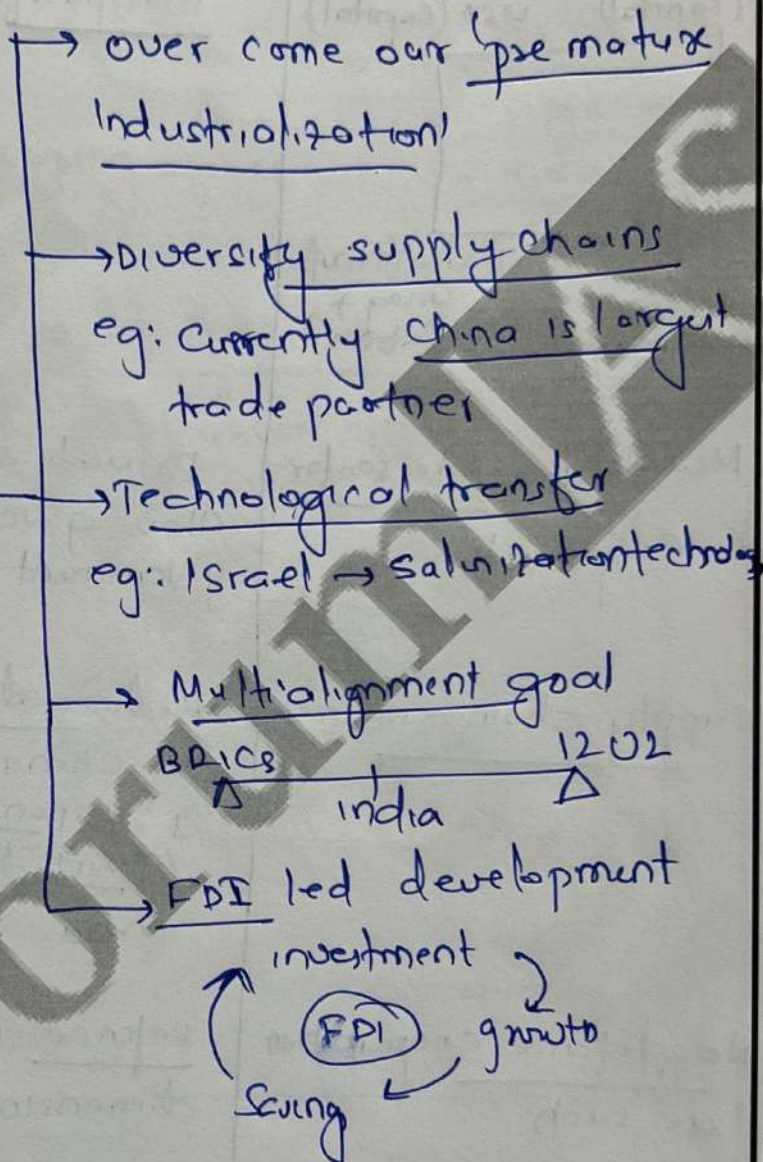 → over come our 'pre mature
Industrialization'
→ Diversify supply chains
eg: Currently china is largest
trade partner
→ Technological transfer
eg: Israel → Salinization
→ Multialignment goal
BRICS I2U2
india
→ FDI led development
investment
FDI growth
Saving
orumIAS